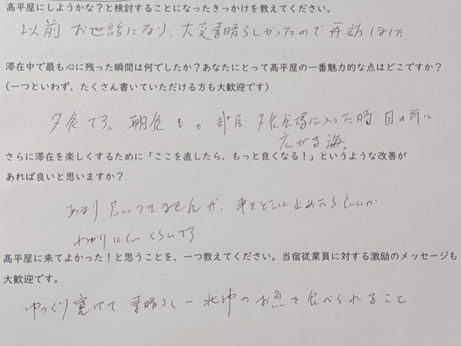 高平屋にしようかな？と検討することになったきっかけを教えてください。
以前お世話になり、大変素晴らしかったので再訪しました
滞在中で最も心に残った瞬間は何でしたか？あなたにとって高平屋の一番魅力的な点はどこですか？
（一つといわず、たくさん書いていただける方も大歓迎です）
夕食です。朝食も。部屋に入った時目の前に
広がる海。
さらに滞在を楽しくするために「ここを直したら、もっと良くなる！」というような改善が
あれば良いと思いますか？
あまり思いつきませんが、車をどこに止めたら良いか
わかりにくいくらいです
高平屋に来てよかった！と思うことを、一つ教えてください。当宿従業員に対する激励のメッセージも
大歓迎です。
ゆっくり寛げて、素晴らしい北沖のお魚を食べられること